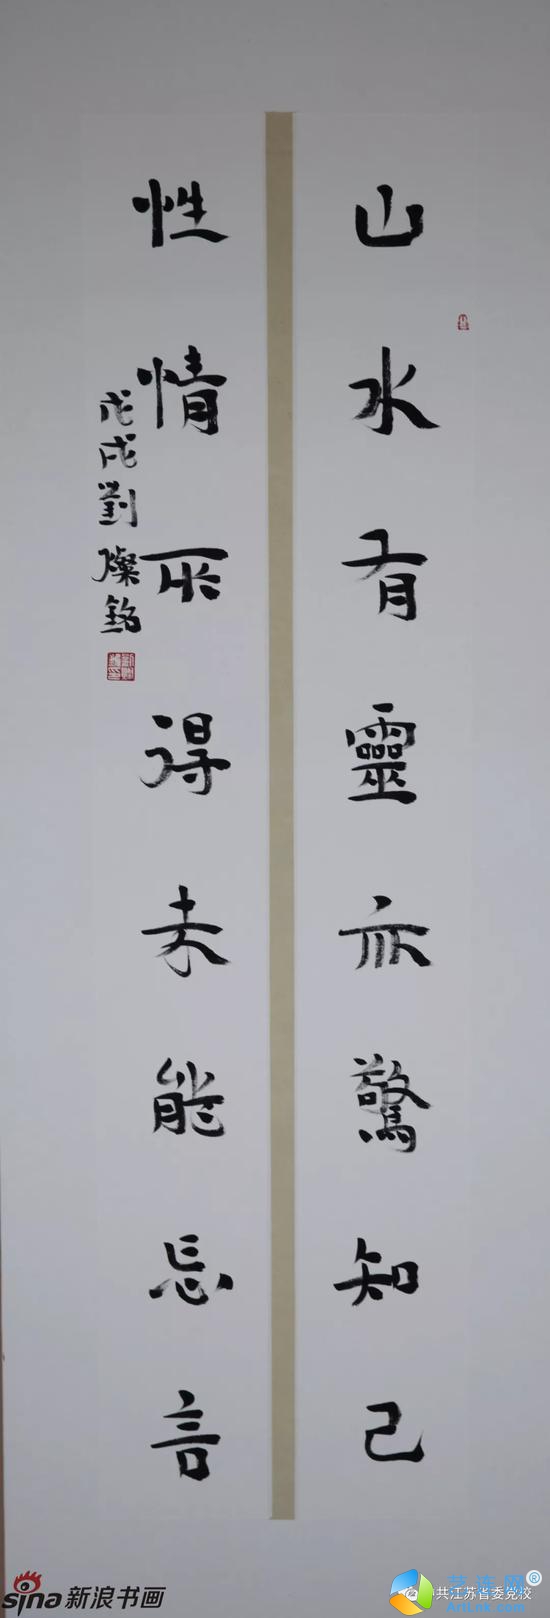 山水有靈亦驚知己
性情所得未能忘言
戊戌劉燦銘
sina新浪书画
共江苏省委党校
艺连网®
ArtLnk.com